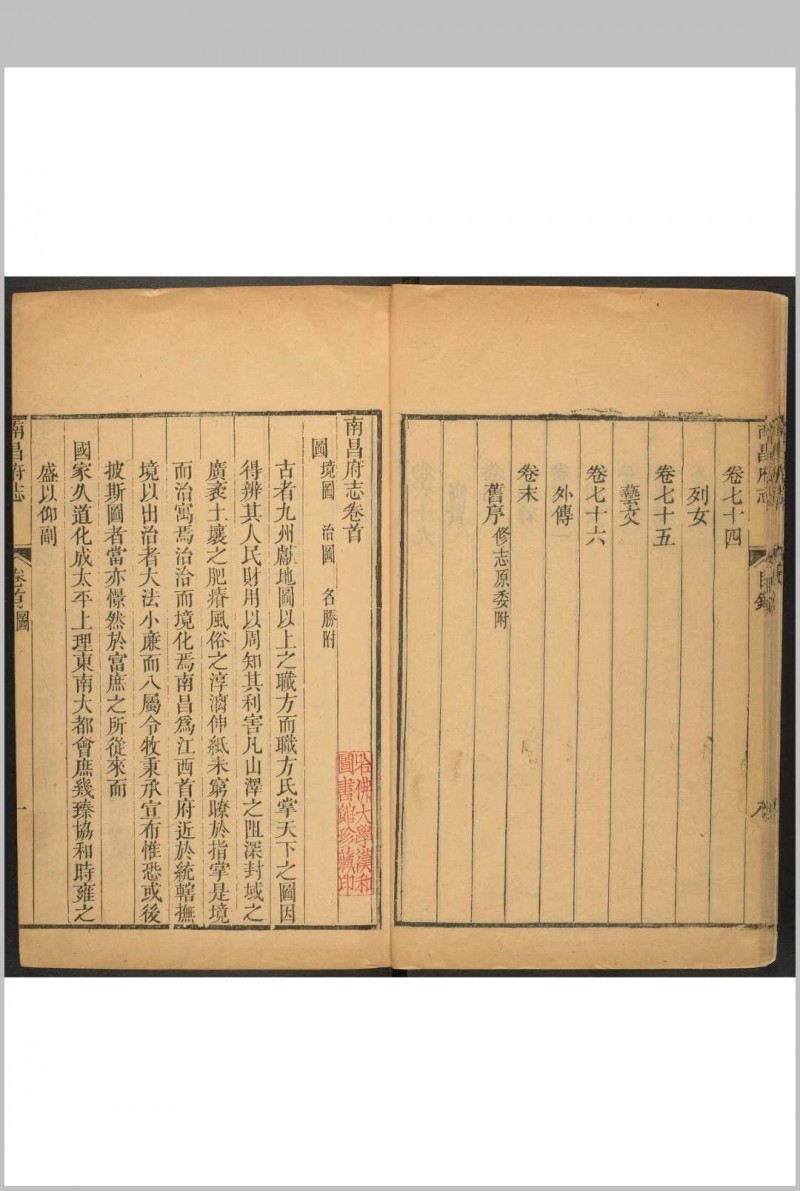 卷七十四
列女
卷七十五
藝文
卷七十六
外傳
卷末
舊序 修志原委附
南昌府志卷首
圖
境圖 治圖 名勝附
古者九州獻地圖以上之職方而職方氏掌天下之圖因
得辨其人民財用以周知其利害凡山澤之阻深封域之
廣袤土壤之肥瘠風俗之淳漓伸紙未窮瞭於指掌是境
而治寓焉治洽而境化焉南昌爲江西首府近於統轄撫
境以出治者大法小廉而八屬令牧秉承宣布惟恐或後
披斯圖者當亦憬然於富庶之所從來而
國家久道化成太平上理東南大都會庶幾臻協和時雍之
盛以仰副
南昌府志
卷首 圖
一
哈佛大學漢和
圖書館珍藏印